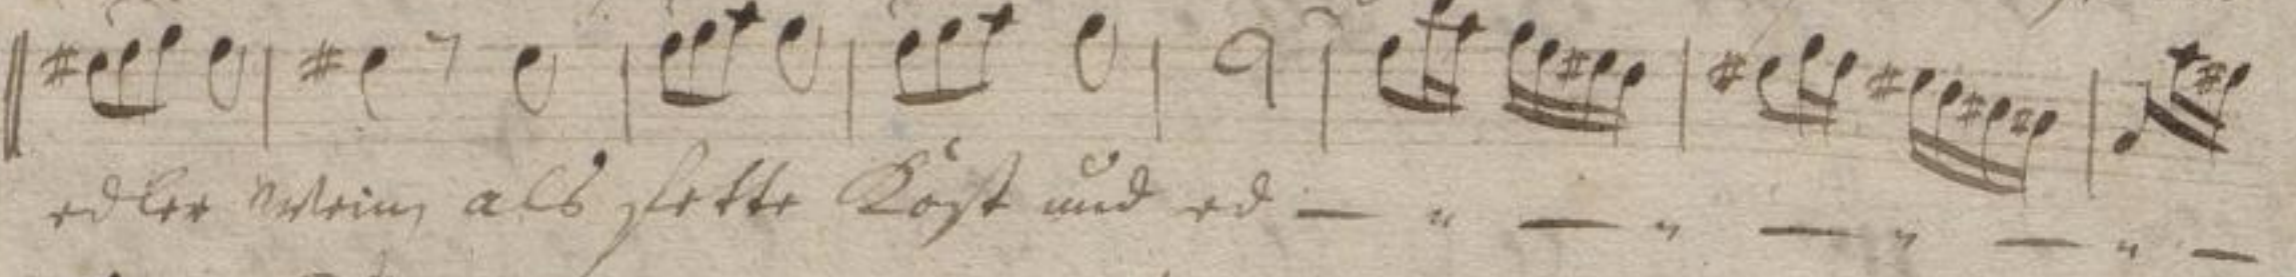 edler Wein, als fette Kost und ed — " — " — " — " —